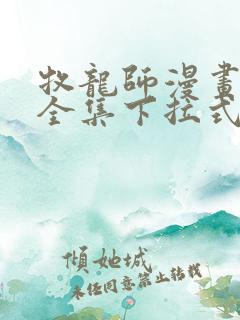 牧龍師漫畫
全集下拉式
傾她城
未经同意禁止转载